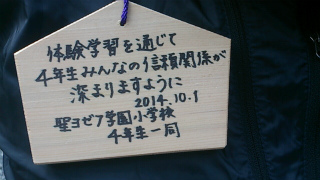 体験学習を通じて
4年生みんなの信頼関係が
深まりますように
2014.10.1
聖ヨゼフ学園小学校
4年生一同